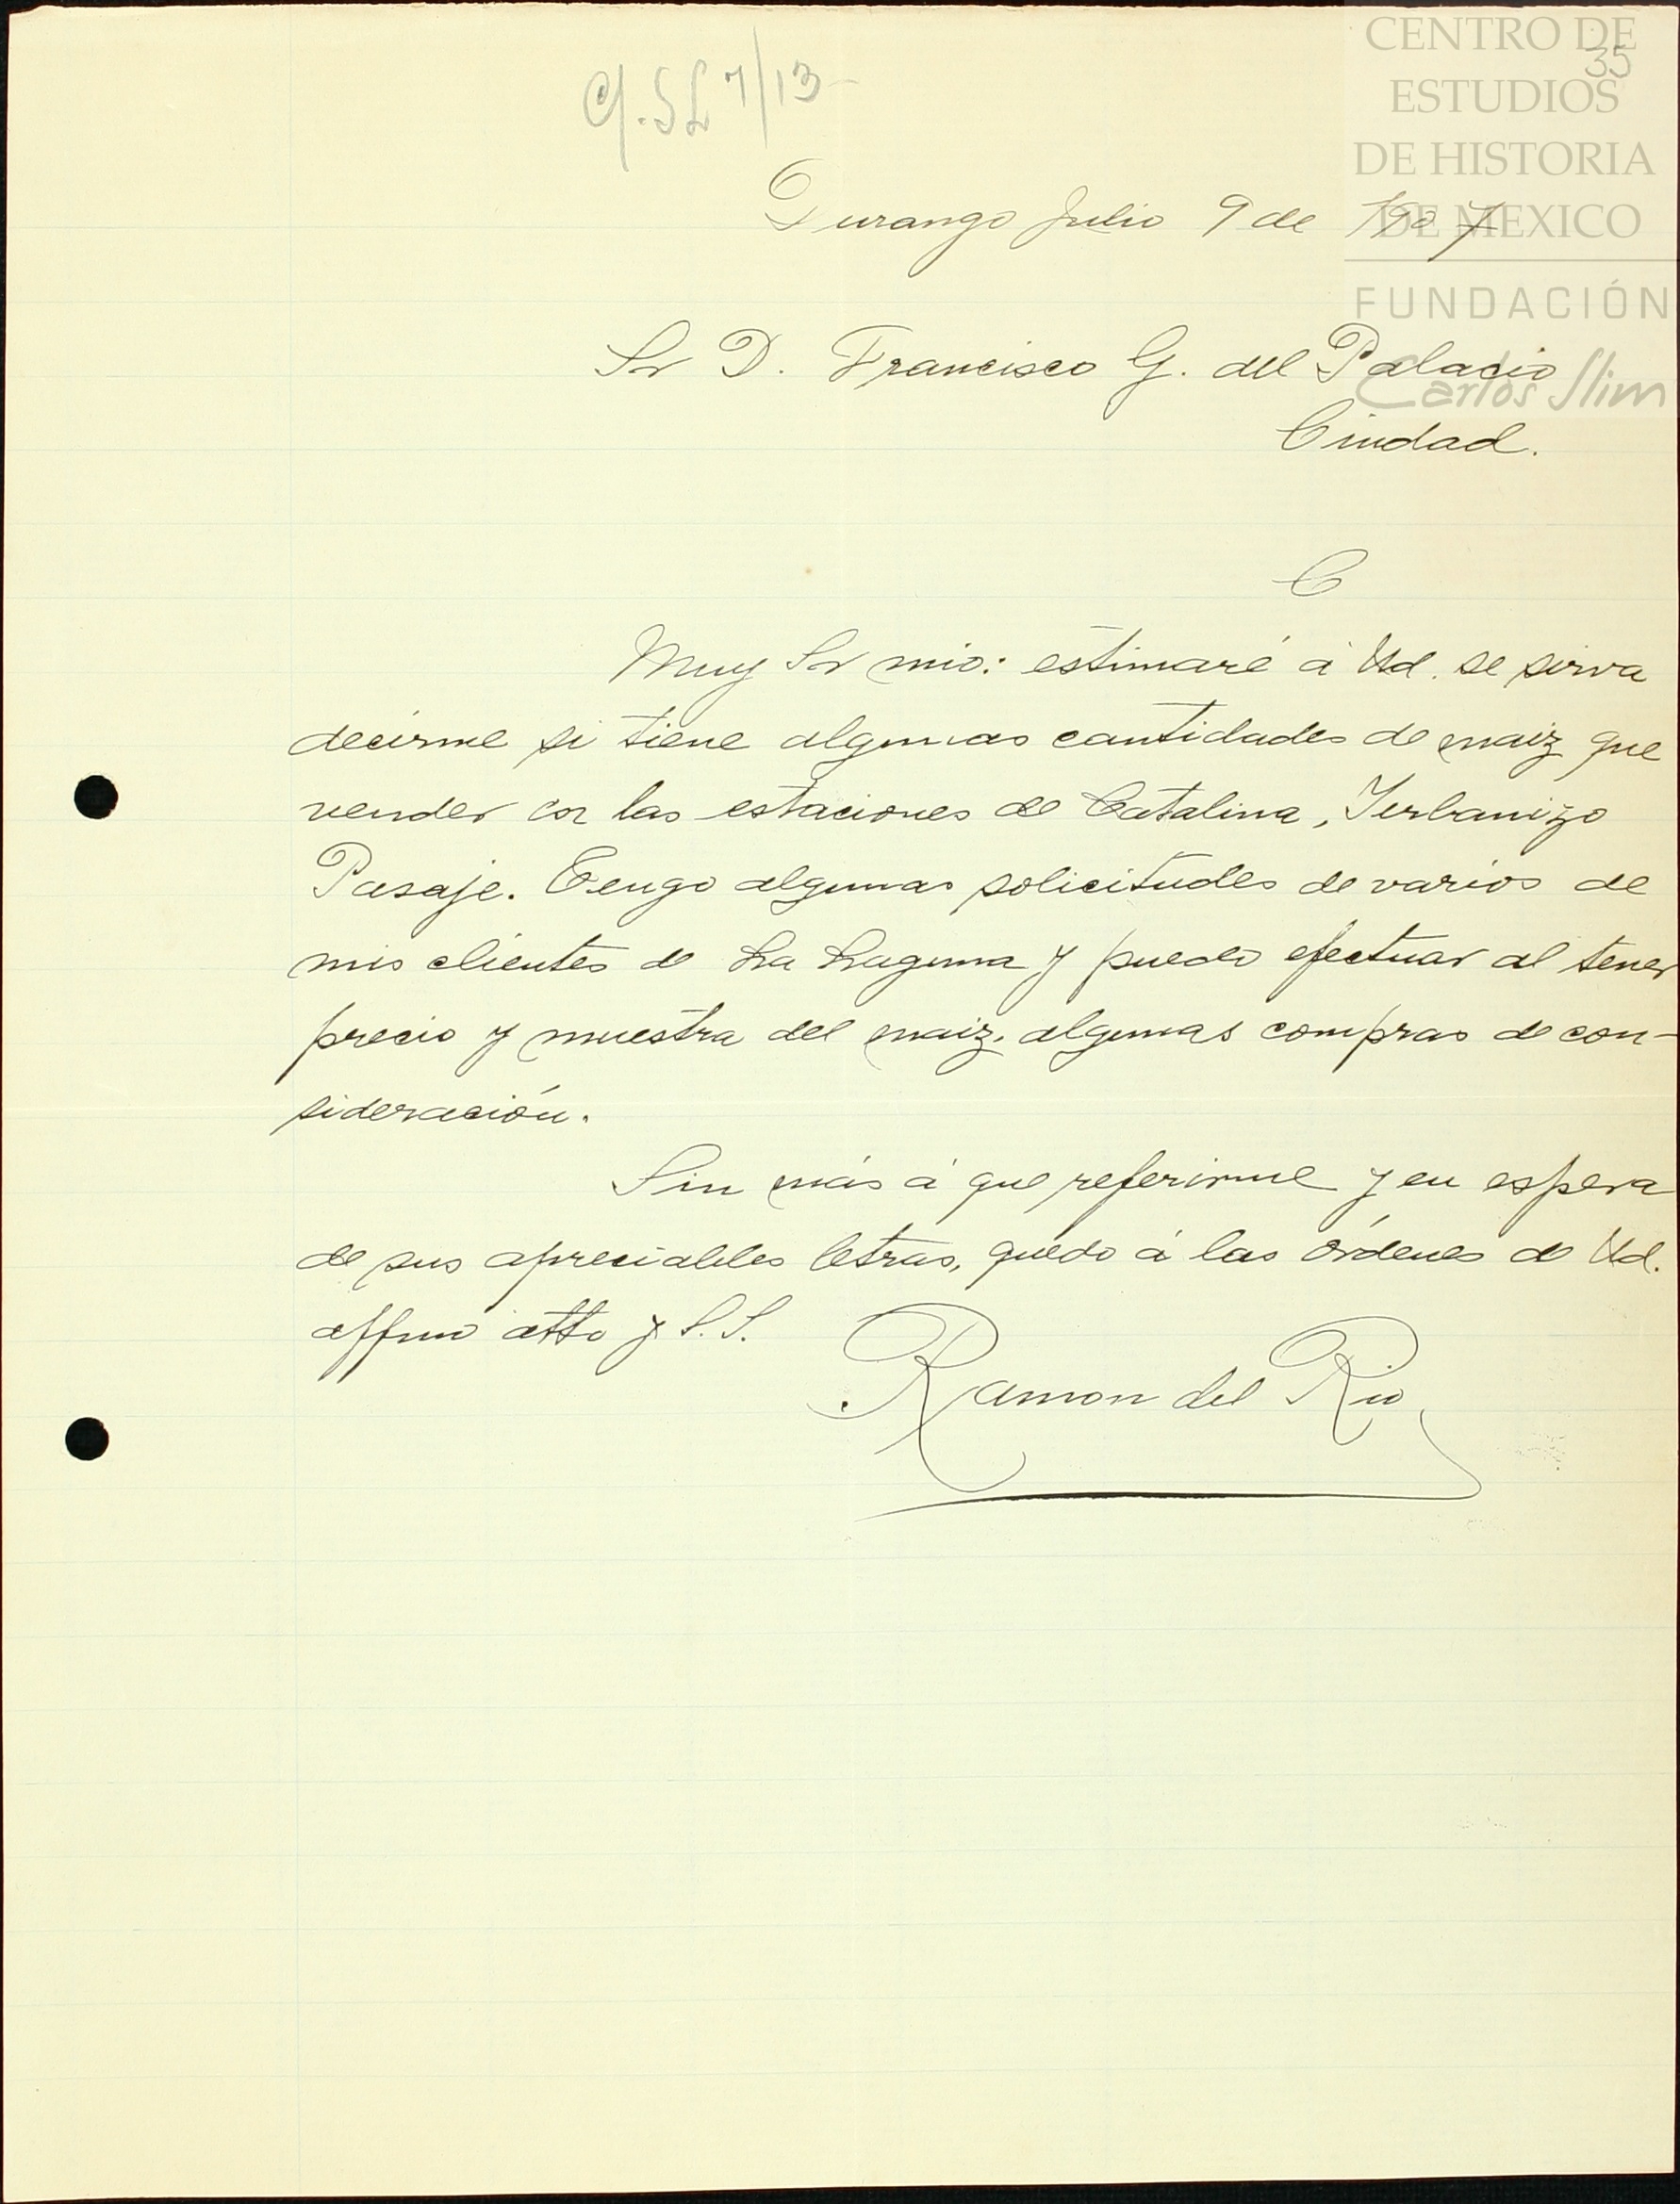 CENTRO DE
35
ESTUDIOS
DE HISTORIA
DE MEXICO
FUNDACIÓN
Carlos Slim
7/13
Durango Julio 9 de 1907
Sr D. Francisco G. del Palacio
Ciudad.
C
Muy Sr mio: estimaré á Ud. se sirva
decirme si tiene algunas cantidades de maiz que
vender en las estaciones de Catalina, Yerbanizo
Pasaje. Tengo algunas solicitudes de varios de
mis clientes de La Laguna y puedo efectuar al tener
precio y muestra del maiz, algunas compras de con-
sideración.
Sin más á que referirme y en espera
de sus apreciables letras, quedo á las órdenes de Ud.
affmo atto y S.S.
Ramon del Rio